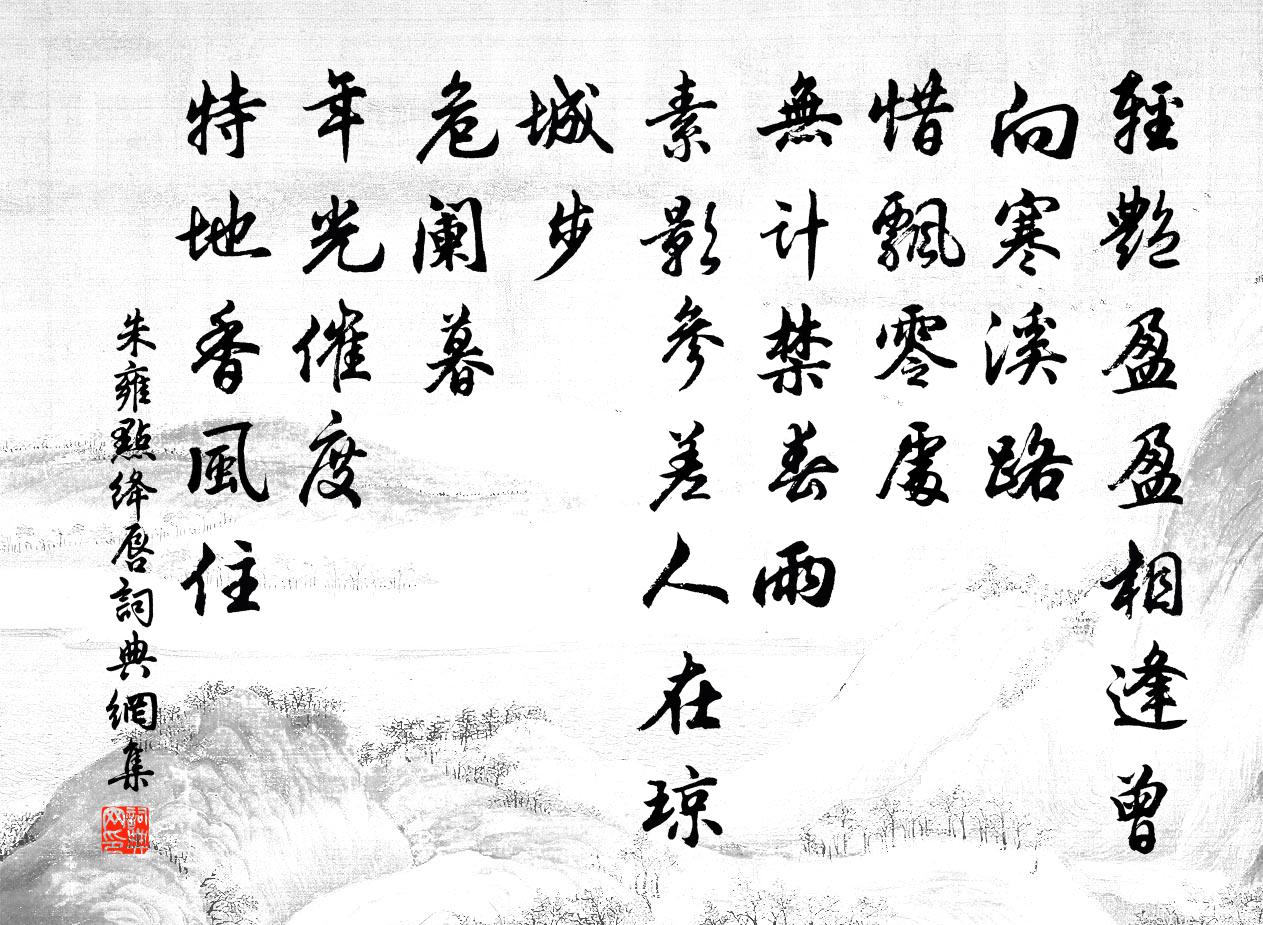 輕艷盈盈相逢曾
向寒溪路
惜飄零處
無計禁春雨
素影參差人在琼
城步
危阑暮
年光催度
特地香風住
朱雍點绛唇詞典網集